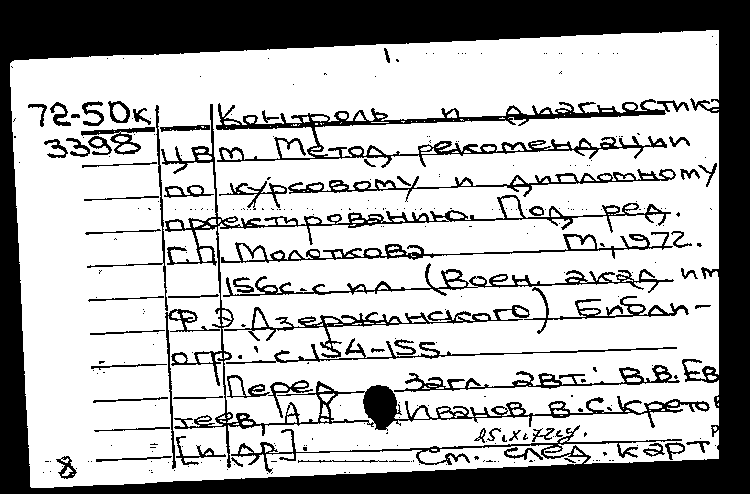 1.
72-50к Контроль и диагностика
3398 ЦВМ. Метод. рекомендации
по курсовому и дипломному
проектированию. Под ред.
Г.П. Молоткова. М., 1972.
156с. с ил. (Воен. акад им
Ф.Э. Дзержинского). Библи-
огр.: с. 154-155.
Перед загл. авт.: В.В. Ев
теев, А.А. Иванов, В.С. Крето
25.XI.72г.
[и др]. См. след. карт.
8